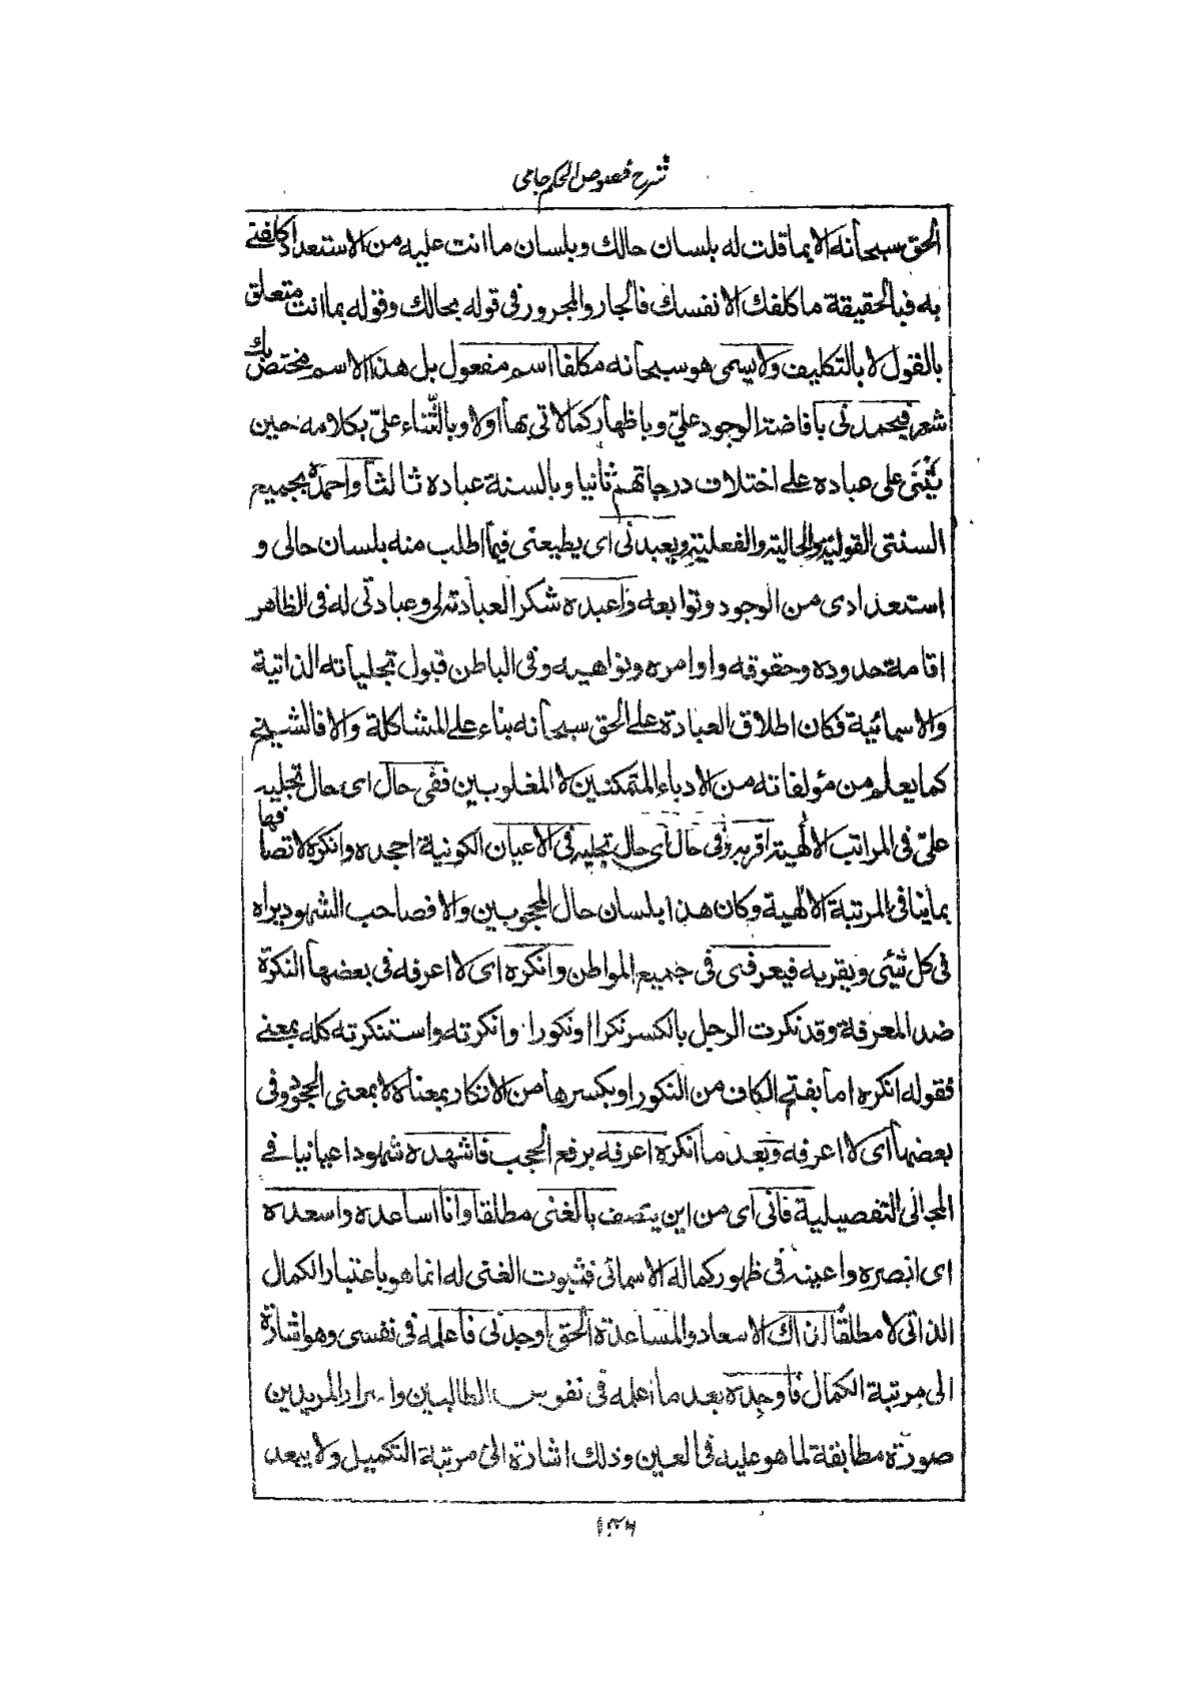 شرح فصوص الحكم جامی
الحق سبحانه الا بما قلت له بلسان حالك وبلسان ما انت عليه من الاستعداد كلفنى
به فبالحقيقة ما كلفك الا نفسك فالجار والمجرور فى قوله بحالك وقوله بما انت متعلق
بالقول لا بالتكليف ولا يسمى هو سبحانه مكلفا اسم مفعول بل هذا الاسم مختص بك
شعر فيحمدنى بافاضة الوجود علىّ وباظهار كمالاتى بها اولا وبالثّناء علىّ بكلامه حين
يُثْنَى على عباده على اختلاف درجاتهم ثانيا وبالسنة عباده ثالثا واحمده بجميع
السنتى القولية والحالية والفعلية ويعبدنى اى يطيعنى فيما اطلب منه بلسان حالى و
استعدادى من الوجود وتوابعه واعبده شكرا لعبادته لى وعبادتى له فى الظاهر
اقامة حدوده وحقوقه واوامره ونواهيه وفى الباطن قبول تجلياته الذاتية
والاسمائية فكان اطلاق العبادة على الحق سبحانه بناء على المشاكلة والا فالشيخ
كما يعلم من مؤلفاته من الادباء المتمكنين لا المغلوبين ففى حال اى حال تجليه
علىّ فى المراتب الالهية اقر به وفى حال اى حال تجليه فى الاعيان الكونية اجحده وانكره لاتصافها
بما ينافى المرتبة الالهية وكان هذا بلسان حال المحجوبين والا فصاحب الشهود يراه
فى كل شئى ويقر به فيعرفنى فى جميع المواطن وانكره اى لا اعرفه فى بعضها النكرة
ضد المعرفة وقد نكرت الرجل بالكسر نكرا ونكورا وانكرته واستنكرته كله بمعنى
فقوله انكره اما بفتح الكاف من النكور او بكسرها من الانكار بمعناه لا بمعنى الجحود وفى
بعضها اى لا اعرفه وبعد ما انكره اعرفه برفع الحجب فاشهده شهودا عيانيا فے
المجالى التفصيلية فانى اى من اين يتصف بالغنى مطلقا وانا اساعده واسعده
اى انصره واعينه فى ظهور كماله الاسمائى فثبوت الغنى له انما هو باعتبار الكمال
الذاتى لا مطلقا لذاك الاسعاد والمساعدة الحق اوجدنى فاعلمه فى نفسى وهو اشارة
الى مرتبة الكمال فاوجده بعد ما اعلمه فى نفوس الطالبين واسرار المريدين
صورة مطابقة لما هو عليه فى العين وذلك اشارة الى مرتبة التكميل ولا يبعد